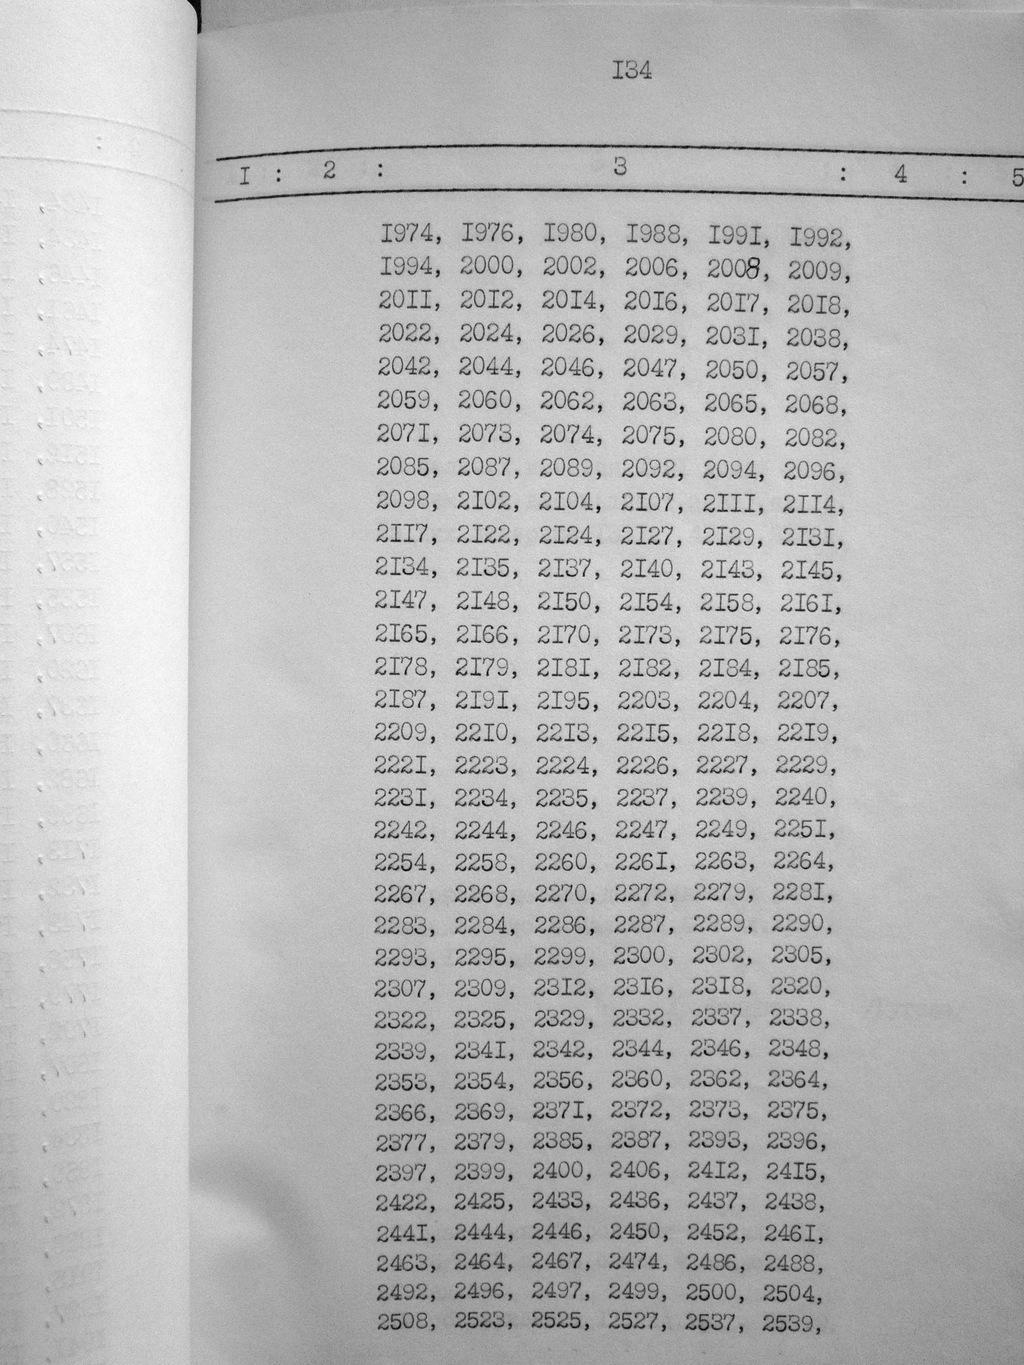 I34
I : 2 : 3 : 4 : 5
I974, I976, I980, I988, I99I, I992,
I994, 2000, 2002, 2006, 2008, 2009,
20II, 20I2, 20I4, 20I6, 20I7, 20I8,
2022, 2024, 2026, 2029, 203I, 2038,
2042, 2044, 2046, 2047, 2050, 2057,
2059, 2060, 2062, 2063, 2065, 2068,
207I, 2073, 2074, 2075, 2080, 2082,
2085, 2087, 2089, 2092, 2094, 2096,
2098, 2I02, 2I04, 2I07, 2III, 2II4,
2II7, 2I22, 2I24, 2I27, 2I29, 2I3I,
2I34, 2I35, 2I37, 2I40, 2I43, 2I45,
2I47, 2I48, 2I50, 2I54, 2I58, 2I6I,
2I65, 2I66, 2I70, 2I73, 2I75, 2I76,
2I78, 2I79, 2I8I, 2I82, 2I84, 2I85,
2I87, 2I9I, 2I95, 2203, 2204, 2207,
2209, 22I0, 22I3, 22I5, 22I8, 22I9,
222I, 2223, 2224, 2226, 2227, 2229,
223I, 2234, 2235, 2237, 2239, 2240,
2242, 2244, 2246, 2247, 2249, 225I,
2254, 2258, 2260, 226I, 2263, 2264,
2267, 2268, 2270, 2272, 2279, 228I,
2283, 2284, 2286, 2287, 2289, 2290,
2293, 2295, 2299, 2300, 2302, 2305,
2307, 2309, 23I2, 23I6, 23I8, 2320,
2322, 2325, 2329, 2332, 2337, 2338,
2339, 234I, 2342, 2344, 2346, 2348,
2353, 2354, 2356, 2360, 2362, 2364,
2366, 2369, 237I, 2372, 2373, 2375,
2377, 2379, 2385, 2387, 2393, 2396,
2397, 2399, 2400, 2406, 24I2, 24I5,
2422, 2425, 2433, 2436, 2437, 2438,
244I, 2444, 2446, 2450, 2452, 246I,
2463, 2464, 2467, 2474, 2486, 2488,
2492, 2496, 2497, 2499, 2500, 2504,
2508, 2523, 2525, 2527, 2537, 2539,